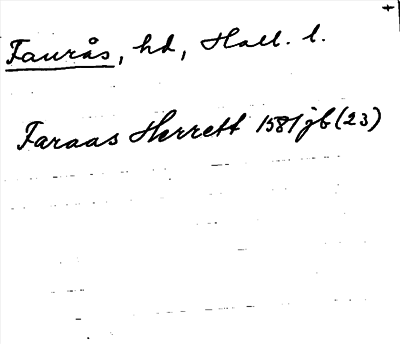 Faurås, hd, Hall. l.
Faraas Herrett 1581 jb (23)